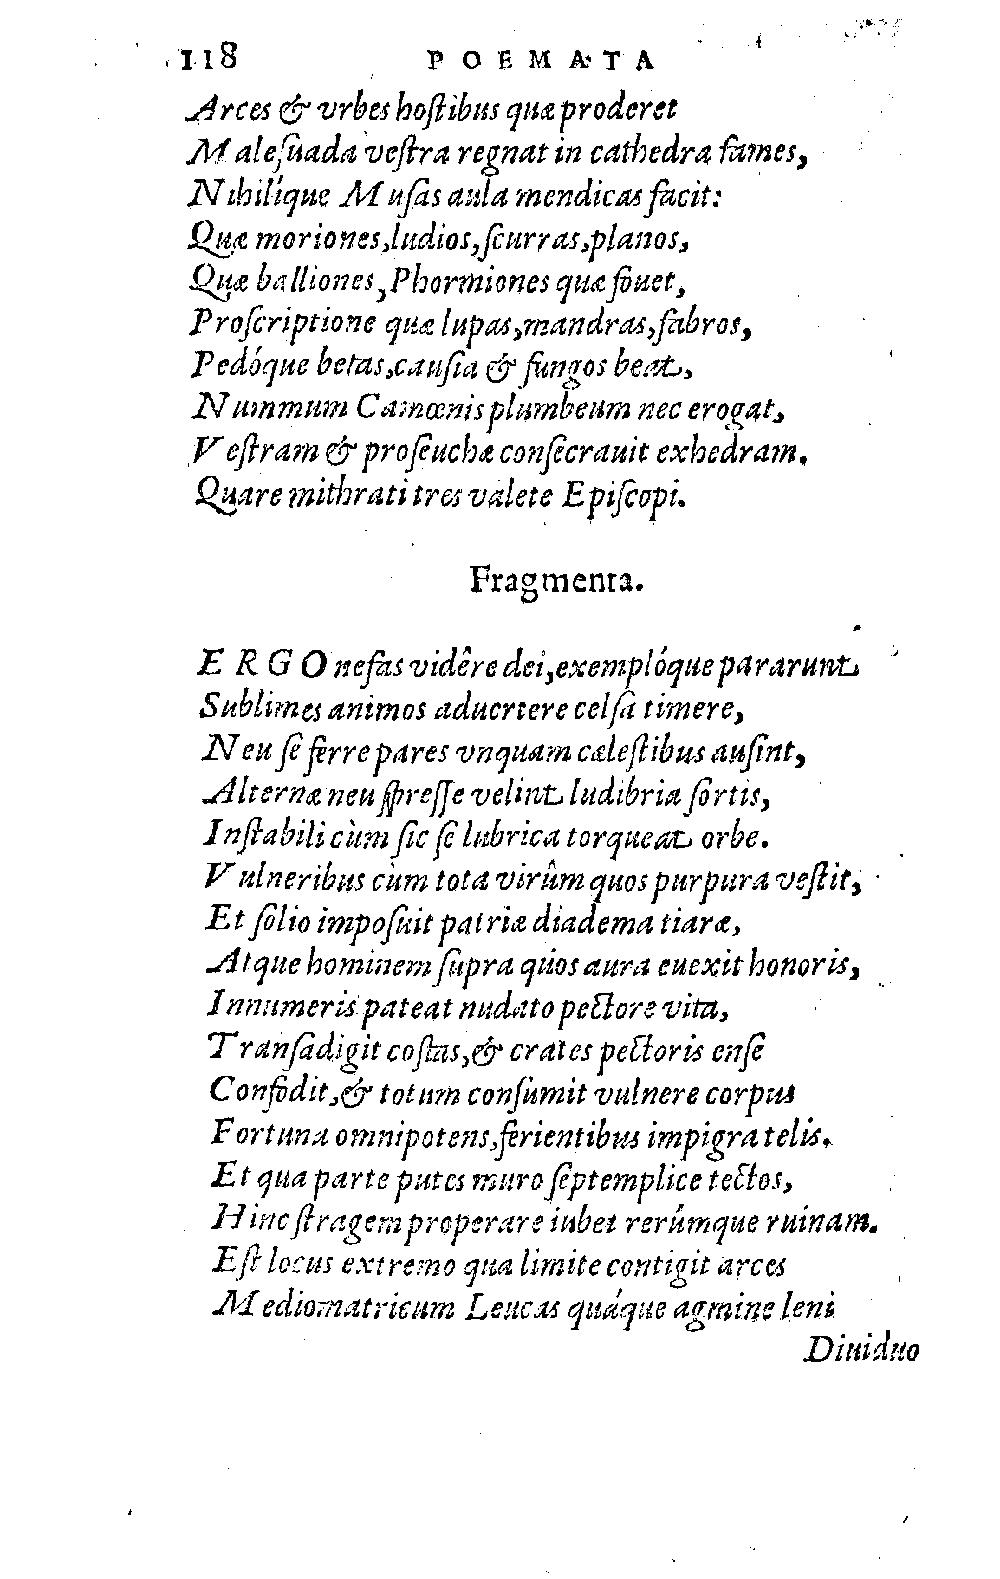 118 POEMATA
Arces & vrbes hoſtibus quæ proderet
Maleſuada veſtra regnat in cathedra fames,
Nihilíque Muſas aula mendicas facit:
Quæ moriones, ludios, ſcurras, planos,
Quæ balliones, Phormiones quæ fouet,
Proſcriptione quæ lupas, mandras, fabros,
Pedóque betas, cauſia & fungos beat,
Nummum Camœnis plumbeum nec erogat,
Veſtram & proſeuchæ conſecrauit exhedram.
Quare mithrati tres valete Epiſcopi.
Fragmenta.
ERGO nefas vidêre dei, exemplóque pararunt
Sublimes animos aduertere celſa timere,
Neu ſe ferre pares vnquam cæleſtibus auſint,
Alternæ neu ſpreſſe velint ludibria ſortis,
Inſtabili cùm ſic ſe lubrica torqueat orbe.
Vulneribus cùm tota virûm quos purpura veſtit,
Et ſolio impoſuit patriæ diadema tiaræ,
Atque hominem ſupra quos aura euexit honoris,
Innumeris pateat nudato pectore vita,
Tranſadigit coſtas, & crates pectoris enſe
Confodit, & totum conſumit vulnere corpus
Fortuna omnipotens, ferientibus impigra telis.
Et qua parte putes muro ſeptemplice tectos,
Hinc ſtragem properare iubet rerúmque ruinam.
Eſt locus extremo qua limite contigit arces
Mediomatricum Leucas quáque agmine leni
Diuiduo